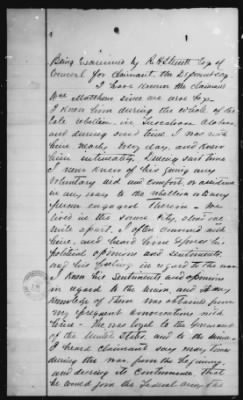 Being Examined by R H Smith Esq of
Counsel for claimant, the Deponent says
I have known the claimant
Wm Matthews since we were boys
I knew him during the whole of the
late rebellion in Tuscaloosa Alabama
and during said time I was with
him nearly every day, and knew
him intimately. During said time
I never knew of his giving any
voluntary aid and comfort, or assistance
in any way to the rebellion or to any
person engaged therein. We
lived in the same city, about one
mile apart. I often conversed with
him, and heard him express his
political opinions and sentiments
and his feelings in regard to the war
I knew his sentiments and opinions
in regard to the war, and my
knowledge of them was obtained from
my frequent conversations with
him. He was loyal to the Government
of the United States and to the Union
I heard claimant say many times
during the war, from the beginning
and during its continuance that
he would join the Federal army